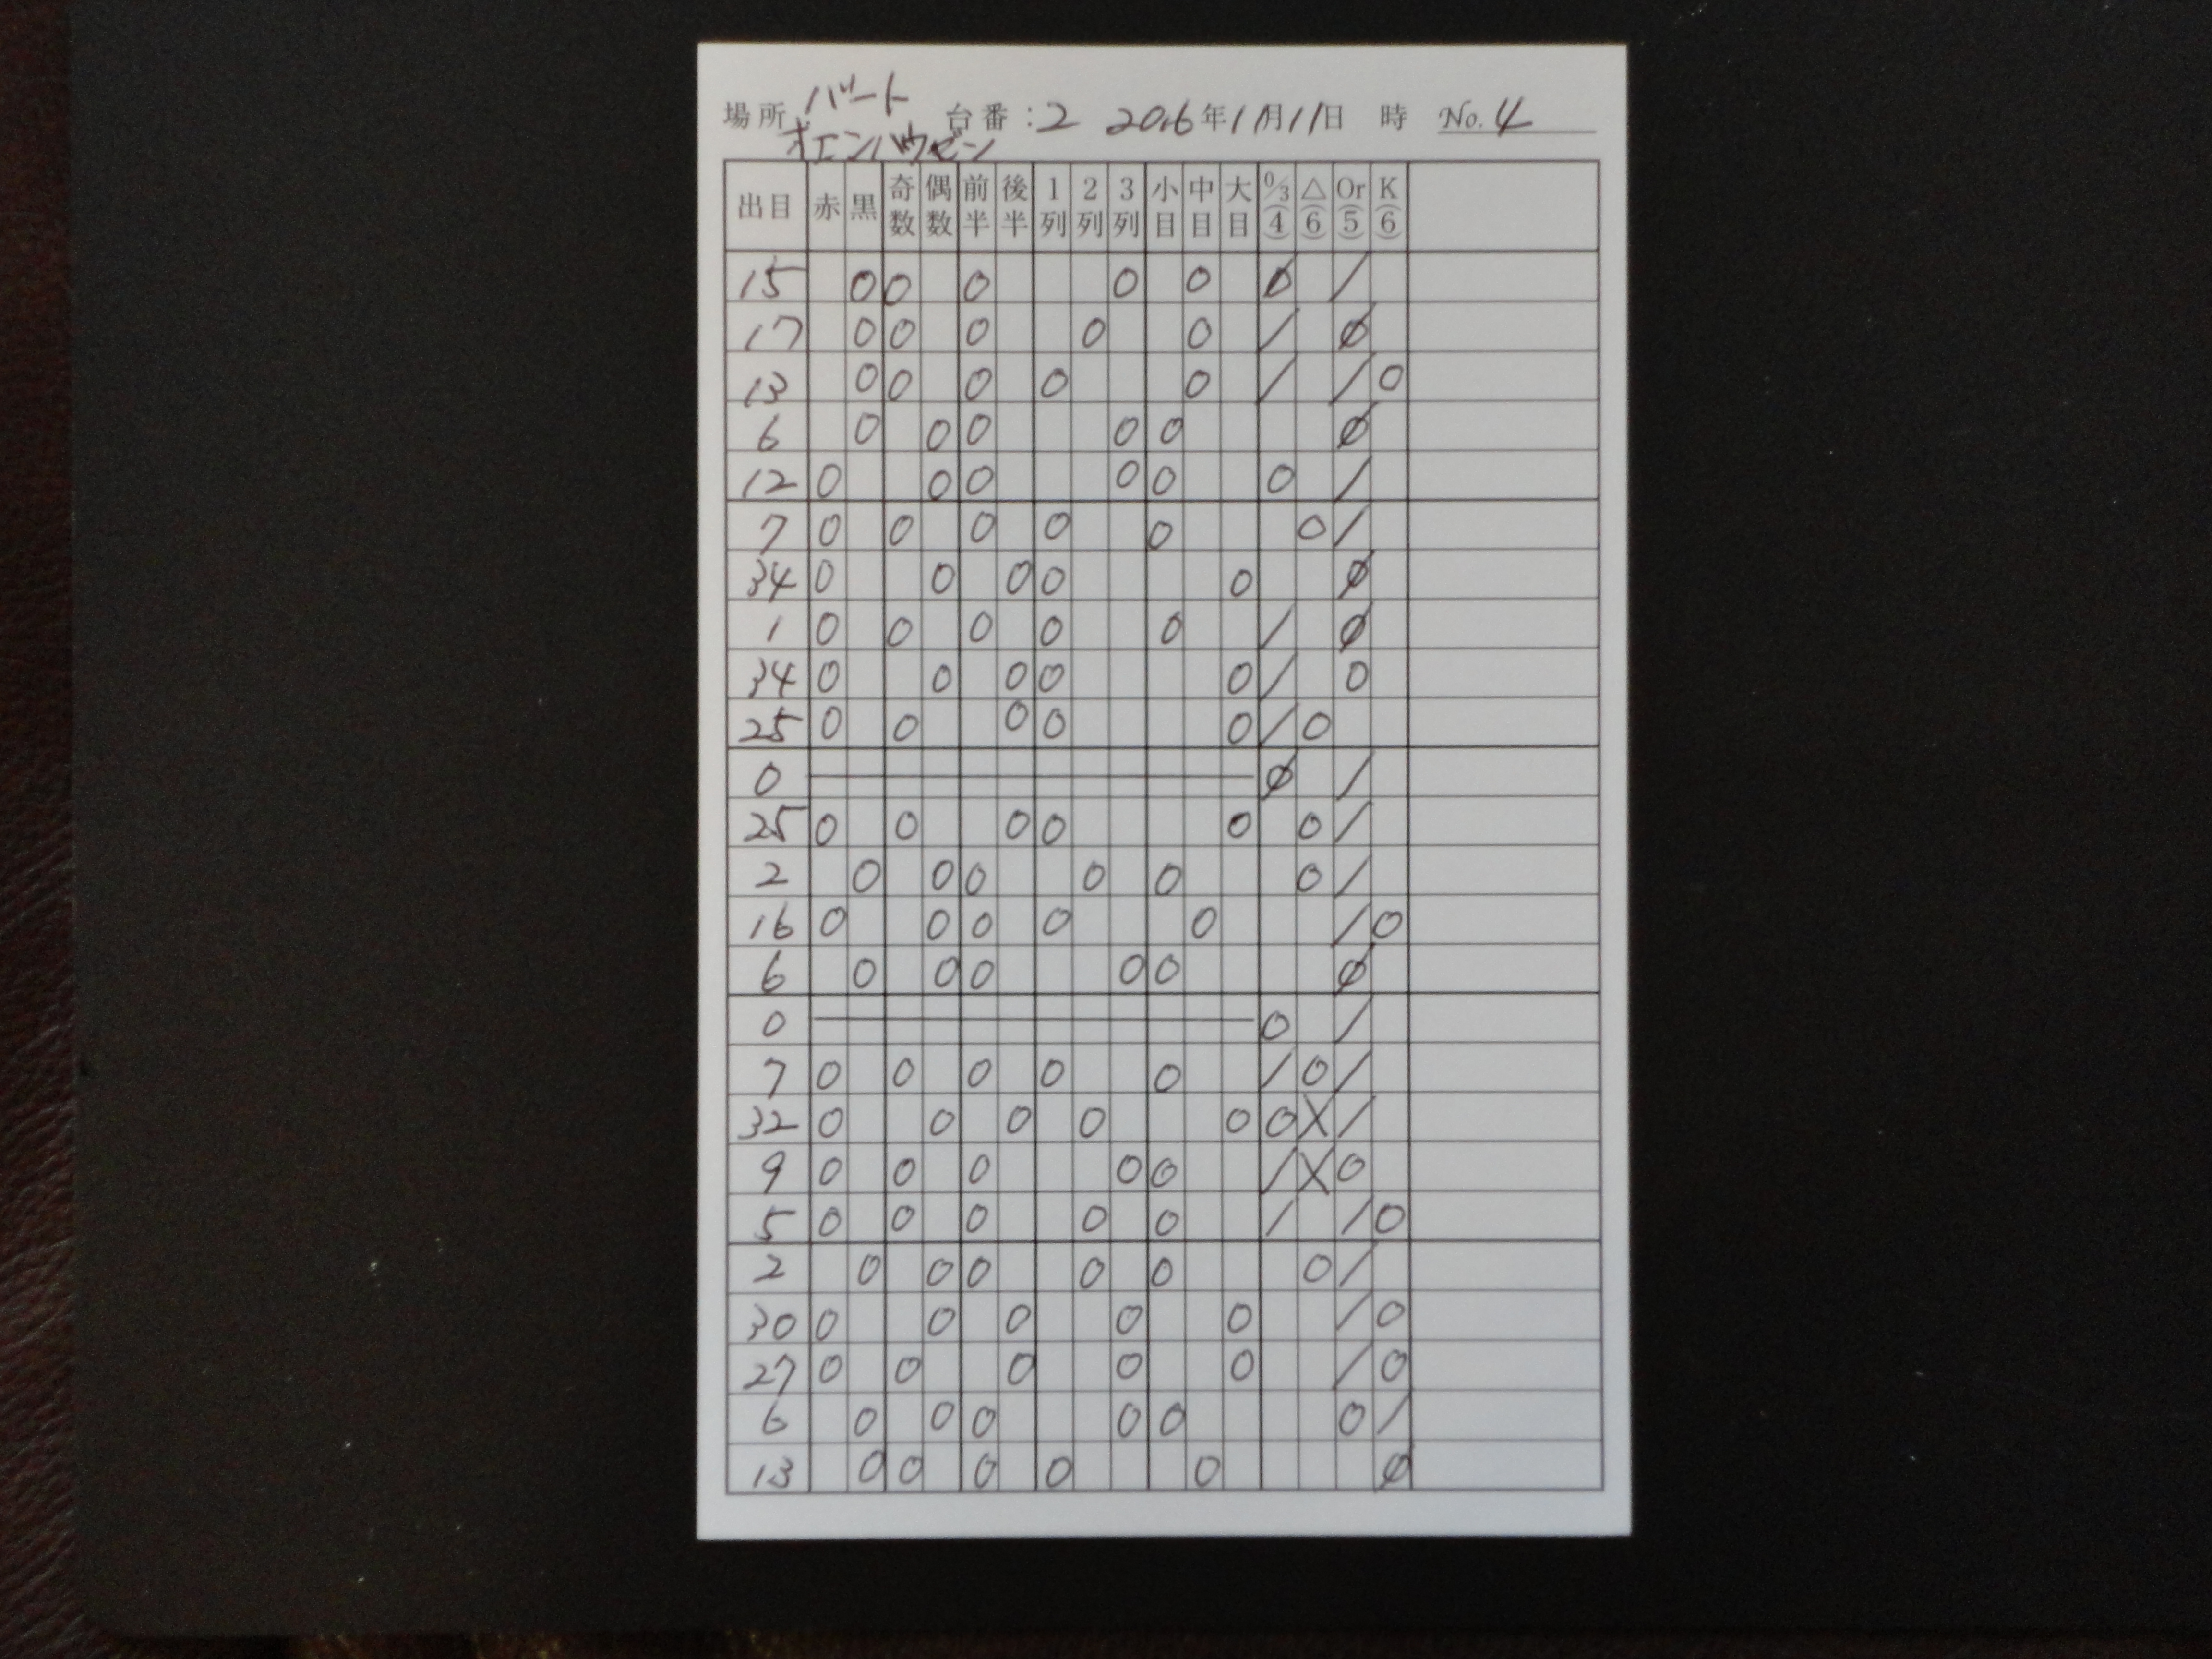 場所 バート 台番:2 2016年11月11日 時 No. 4
オエンハウゼン
出目 赤 黒 奇数 偶数 前半 後半 1列 2列 3列 小目 中目 大目 0/3(4) △(6) Or(5) K(6)
15 0 0 0 0 0 Ø /
17 0 0 0 0 0 / Ø
13 0 0 0 0 0 / / 0
6 0 0 0 0 0 Ø
12 0 0 0 0 0 0 /
7 0 0 0 0 0 0 /
34 0 0 0 0 0 Ø
1 0 0 0 0 0 / Ø
34 0 0 0 0 0 / 0
25 0 0 0 0 0 / 0
0 Ø /
25 0 0 0 0 0 0 /
2 0 0 0 0 0 0 /
16 0 0 0 0 0 / 0
6 0 0 0 0 0 Ø
0 0 /
7 0 0 0 0 0 / 0 /
32 0 0 0 0 0 0 X /
9 0 0 0 0 0 / X 0
5 0 0 0 0 0 / / 0
2 0 0 0 0 0 0 /
30 0 0 0 0 0 / 0
27 0 0 0 0 0 / 0
6 0 0 0 0 0 0 /
13 0 0 0 0 0 Ø